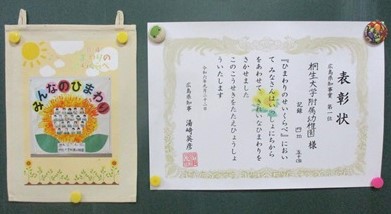 みんなのひまわり
表彰状
広島県知事賞 第一位
桐生大学附属幼稚園 様
記録 四m
『ひまわりのせいくらべ』におい
て みなさんは いっしょにちから
をあわせて きれいなひまわりを
さかせました
このこうせきをたたえひょうしょ
ういたします
広島県知事 湯崎英彦